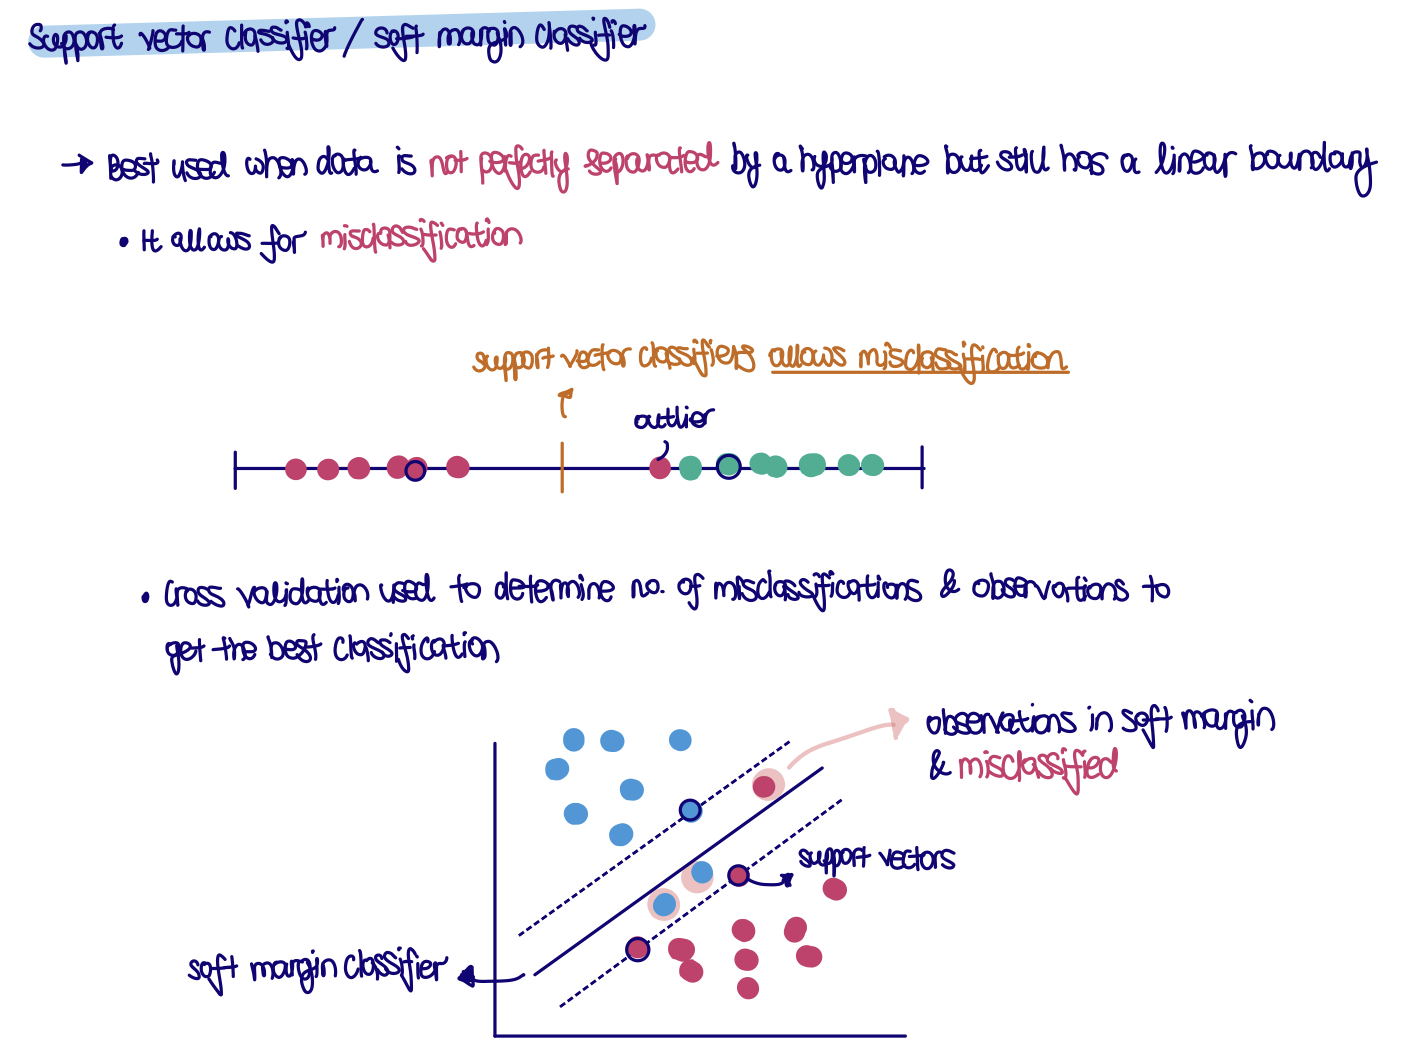 Support vector classifier / soft margin classifier
→ Best used when data is not perfectly separated by a hyperplane but still has a linear boundary
• It allows for misclassification
support vector classifiers allows misclassification
outlier
• Cross validation used to determine no. of misclassifications & observations to
get the best classification
observations in soft margin
& misclassified
support vectors
soft margin classifier